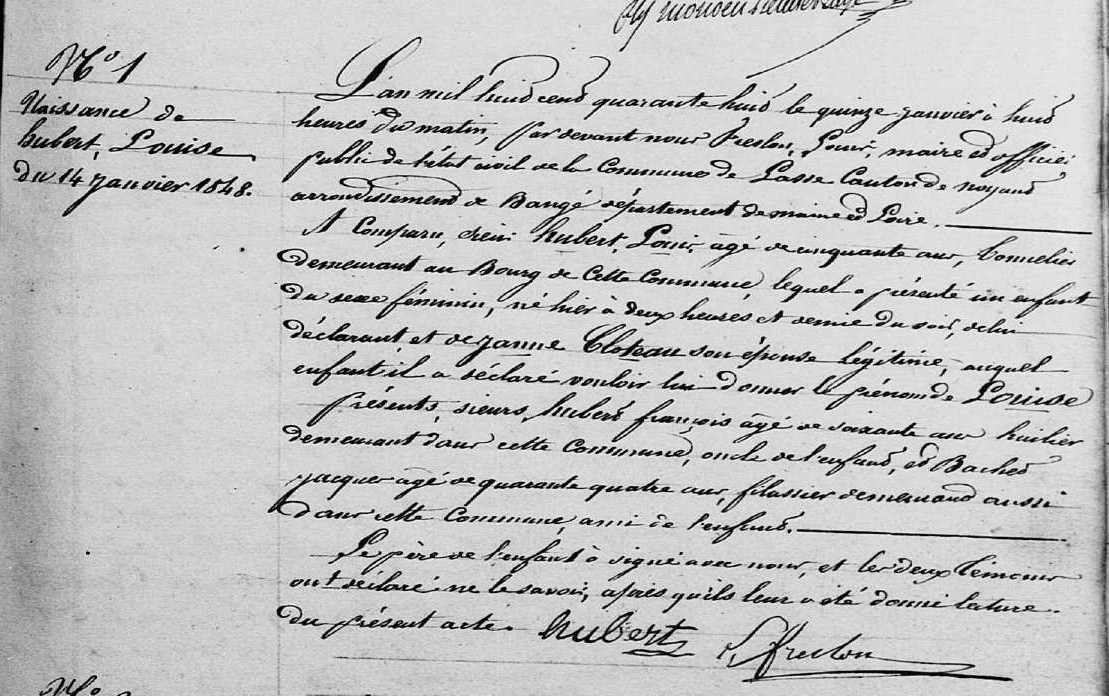 N.° 1
Naissance de
hubert, Louise
du 14 Janvier 1848.
L'an mil huit cent quarante huit le quinze janvier à huit
heures du matin, par devant nous Freslon, Louis, maire et officier
public de l'état civil de la Commune de Lasse Canton de noyant
arrondissement de Baugé département de maine et Loire.
A Comparu, hubert, Louis, âgé de cinquante ans, tonnelier
demeurant au Bourg de Cette Commune, lequel a présenté un enfant
du sexe féminin, né hier à deux heures et demie du soir, de lui
déclarant et de Janne Cloteau son épouse légitime, auquel
enfant il a déclaré vouloir lui donner le prénom de Louise
présents, sieurs, hubert françois âgé de soixante ans huilier
demeurant dans cette Commune, oncle de l'enfant, et Bachet
jacques âgé de quarante quatre ans, filassier demeurant aussi
dans cette Commune, ami de l'enfant.
Le père de l'enfant à signé avec nous, et les deux témoins
ont déclaré ne le savoir, après qu'ils leur a été donné lecture
du présent acte. hubert L. freslon